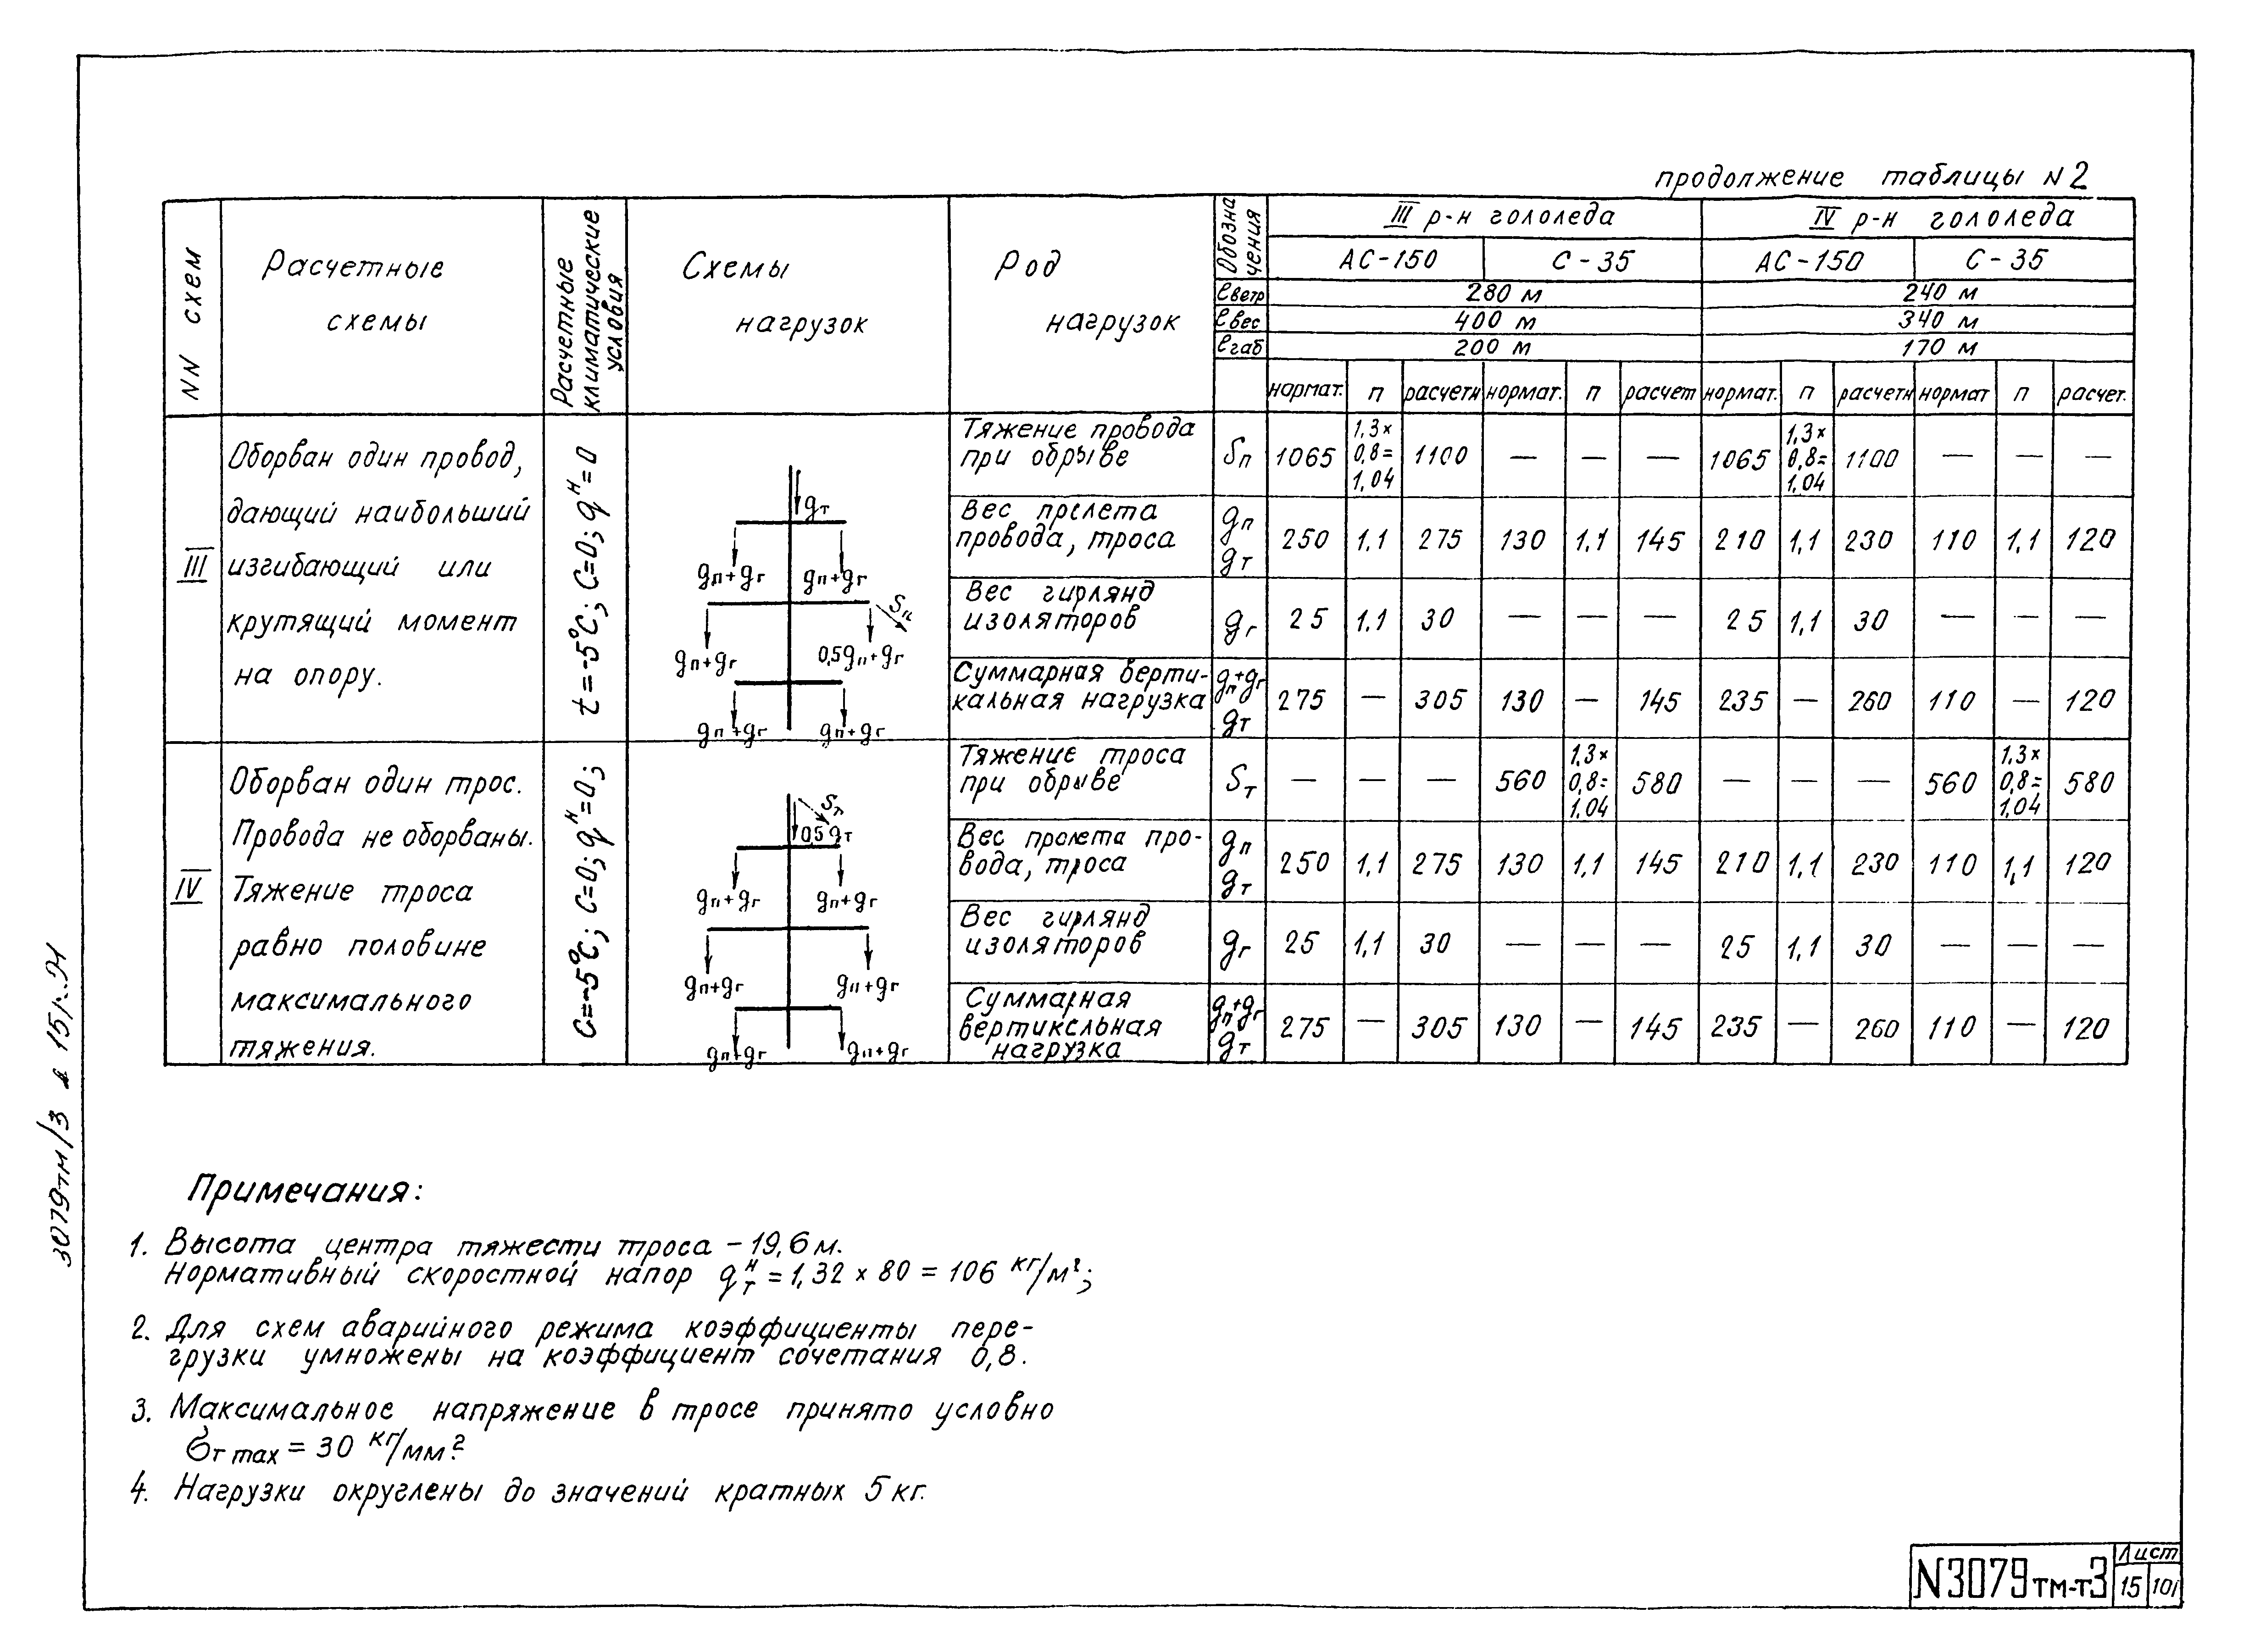 продолжение таблицы N2
NN схем
Расчетные
схемы
Расчетные
климатические
условия
Схемы
нагрузок
Род
нагрузок
Обозна
чения
III р-н гололеда
IV р-н гололеда
АС-150 С-35 АС-150 С-35
ℓветр 280 м 240 м
ℓвес 400 м 340 м
ℓгаб 200 м 170 м
нормат. п расчетн нормат. п расчет нормат. п расчетн нормат п расчет.
III
Оборван один провод,
дающий наибольший
изгибающий или
крутящий момент
на опору.
t=-5°C; C=0; qᴴ=0
gт
gп+gг gп+gг
Sп
gп+gг 0,5gп+gг
gп+gг gп+gг
Тяжение провода
при обрыве
Sп 1065 1,3×0,8=1,04 1100 — — — 1065 1,3×0,8=1,04 1100 — — —
Вес пролета
провода, троса
gп gт 250 1.1 275 130 1,1 145 210 1,1 230 110 1,1 120
Вес гирлянд
изоляторов
gг 25 1.1 30 — — — 25 1,1 30 — — —
Суммарная верти-
кальная нагрузка
gп+gг gт 275 — 305 130 — 145 235 — 260 110 — 120
IV
Оборван один трос.
Провода не оборваны.
Тяжение троса
равно половине
максимального
тяжения.
C=-5°C; C=0; qᴴ=0;
Sт
0,5gт
gп+gг gп+gг
gп+gг gп+gг
gп+gг gп+gг
Тяжение троса
при обрыве
Sт — — — 560 1,3×0,8=1,04 580 — — — 560 1,3×0,8=1,04 580
Вес пролета про-
вода, троса
gп gт 250 1,1 275 130 1,1 145 210 1,1 230 110 1,1 120
Вес гирлянд
изоляторов
gг 25 1,1 30 — — — 25 1,1 30 — — —
Суммарная
вертикальная
нагрузка
gп+gг gт 275 — 305 130 — 145 235 — 260 110 — 120
Примечания:
1. Высота центра тяжести троса – 19,6 м.
Нормативный скоростной напор qтᴴ = 1,32 × 80 = 106 кг/м²;
2. Для схем аварийного режима коэффициенты пере-
грузки умножены на коэффициент сочетания 0,8.
3. Максимальное напряжение в тросе принято условно
σт max = 30 кг/мм²
4. Нагрузки округлены до значений кратных 5 кг.
N3079тм-т3
Лист
15 101